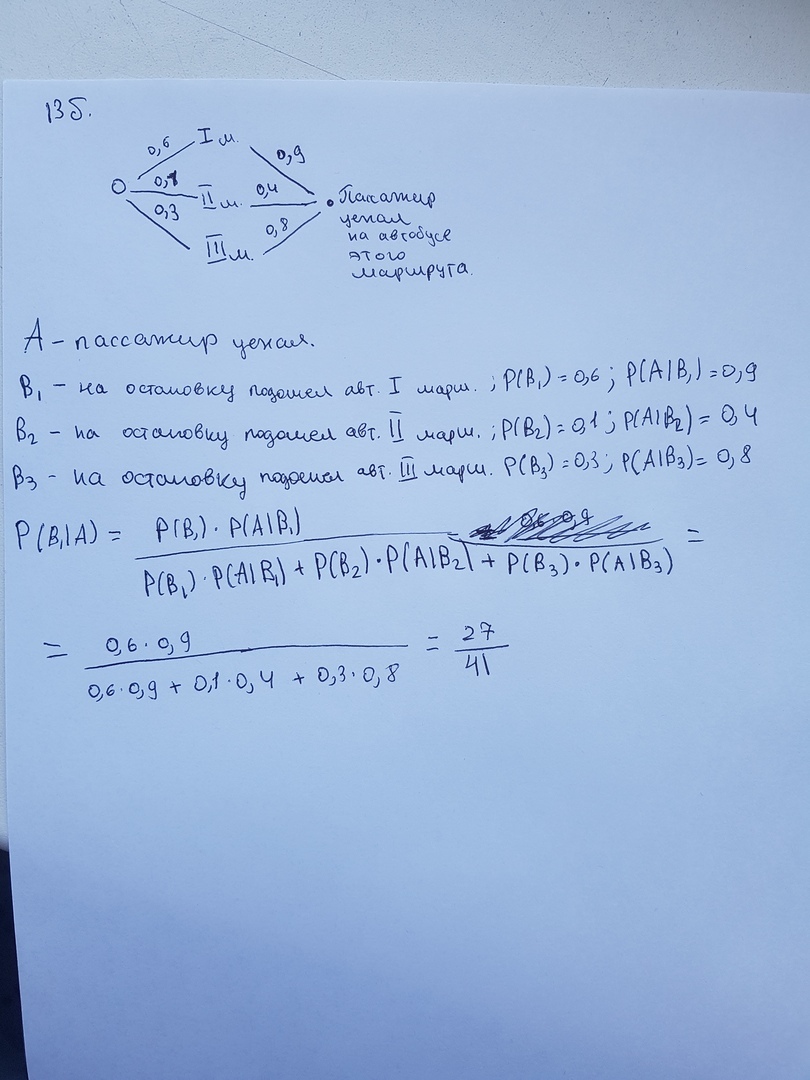 135.
0,6 I м. 0,9
0,1 II м. 0,4
0,3 III м. 0,8
Пассажир
уехал
на автобусе
этого
маршрута.
A – пассажир уехал.
B₁ – на остановку подошел авт. I марш. ; P(B₁) = 0,6 ; P(A|B₁) = 0,9
B₂ – на остановку подошел авт. II марш. ; P(B₂) = 0,1 ; P(A|B₂) = 0,4
B₃ – на остановку подошел авт. III марш. P(B₃) = 0,3 ; P(A|B₃) = 0,8
P(B₁|A) = P(B₁) · P(A|B₁) =
P(B₁) · P(A|B₁) + P(B₂) · P(A|B₂) + P(B₃) · P(A|B₃)
= 0,6 · 0,9 = 27
0,6 · 0,9 + 0,1 · 0,4 + 0,3 · 0,8 41